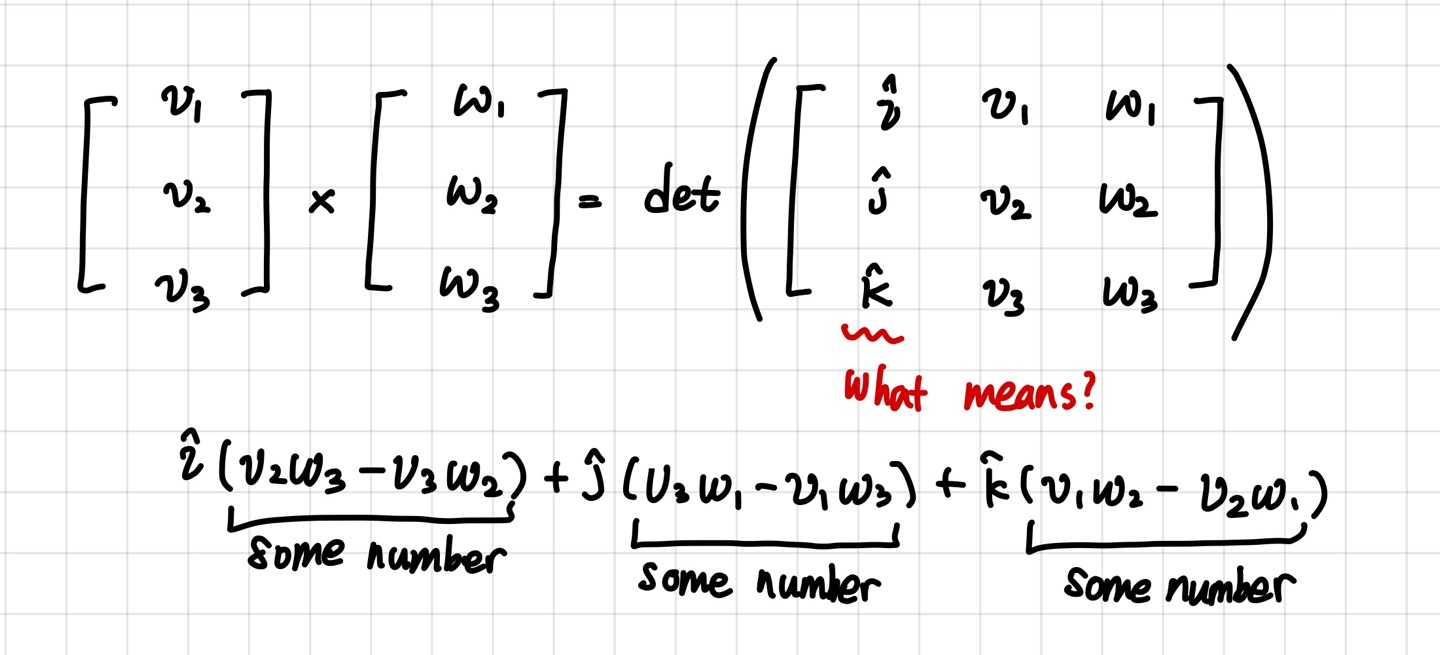 [v₁ v₂ v₃] × [w₁ w₂ w₃] = det([î v₁ w₁
ĵ v₂ w₂
k̂ v₃ w₃])
What means?
î(v₂w₃ − v₃w₂) + ĵ(v₃w₁ − v₁w₃) + k̂(v₁w₂ − v₂w₁)
some number some number some number